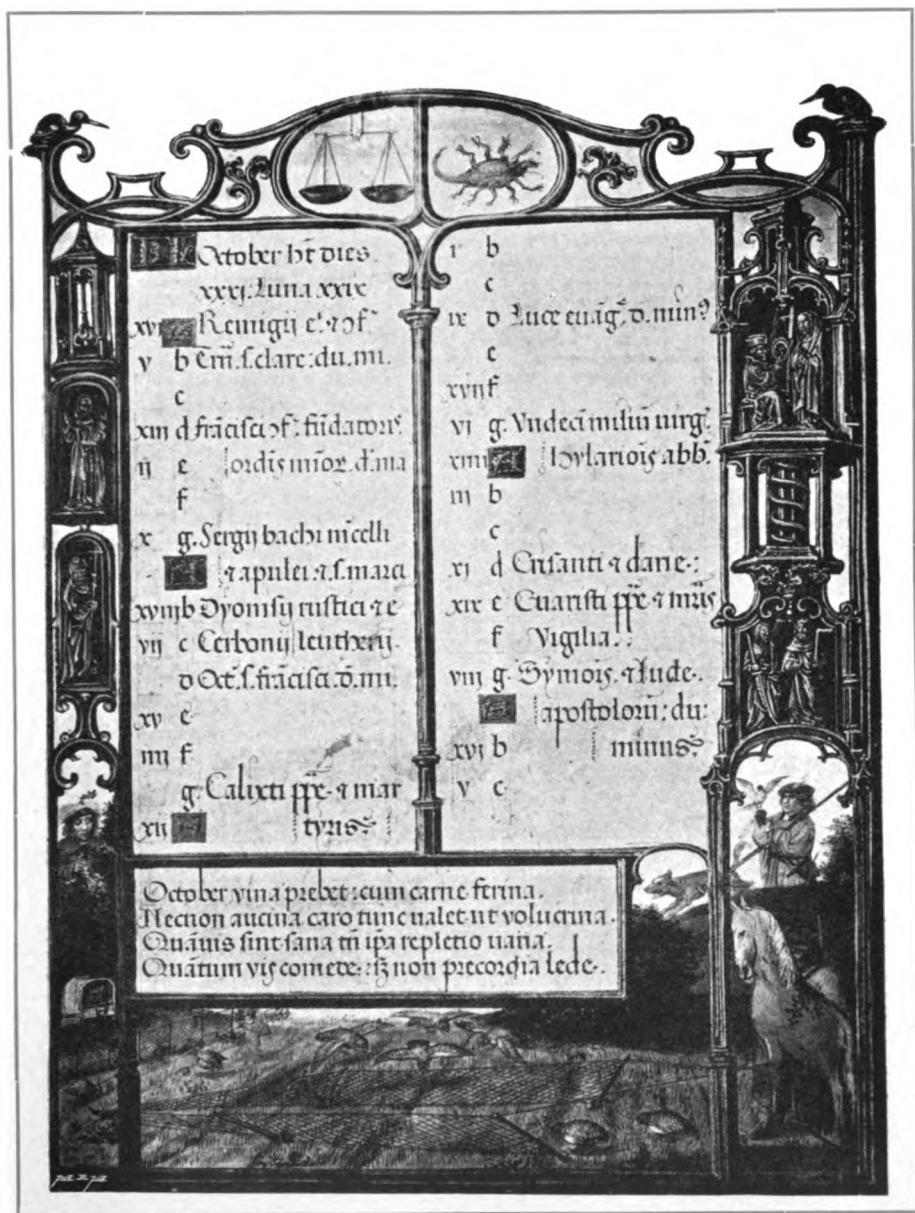 KL October ht dies
xxxj. Luna xxix
xvj A Remigij et ꝯf
v b Tm̄. s. clare: du. mi.
c
xiij d frācisci ꝯf: fūdatoris
ij e ordīs mīor. d. ma
f
x g. Sergij bachi mcelli
A ⁊ apulei ⁊ s. marci
xviij b Dyonisij rustici ⁊ e
vij c Cerbonij leutherij.
d Oct. s. frācisci. d. mi.
xv e
iiij f
g. Calixti pp̄e ⁊ mar
xij A tyris
i b
c
ix d Luce euāg. d. min9
e
xvij f
vi g. Vndeci miliū uirg.
xiiij A Hylariōis abb.
iij b
c
xj d Crisanti ⁊ darie:
xix e Euaristi pp̄e ⁊ mr̄is
f Vigilia.
viij g. Symōis. ⁊ Jude.
A apostolorū: du:
xvj b minus
v c.
October vina prebet: cum carne ferina.
Necnon aucina caro tunc ualet ut volucrina.
Quāuis sint sana tn̄ ip̄a repletio uana.
Quātum vis comede: sꝫ non precordia lede.